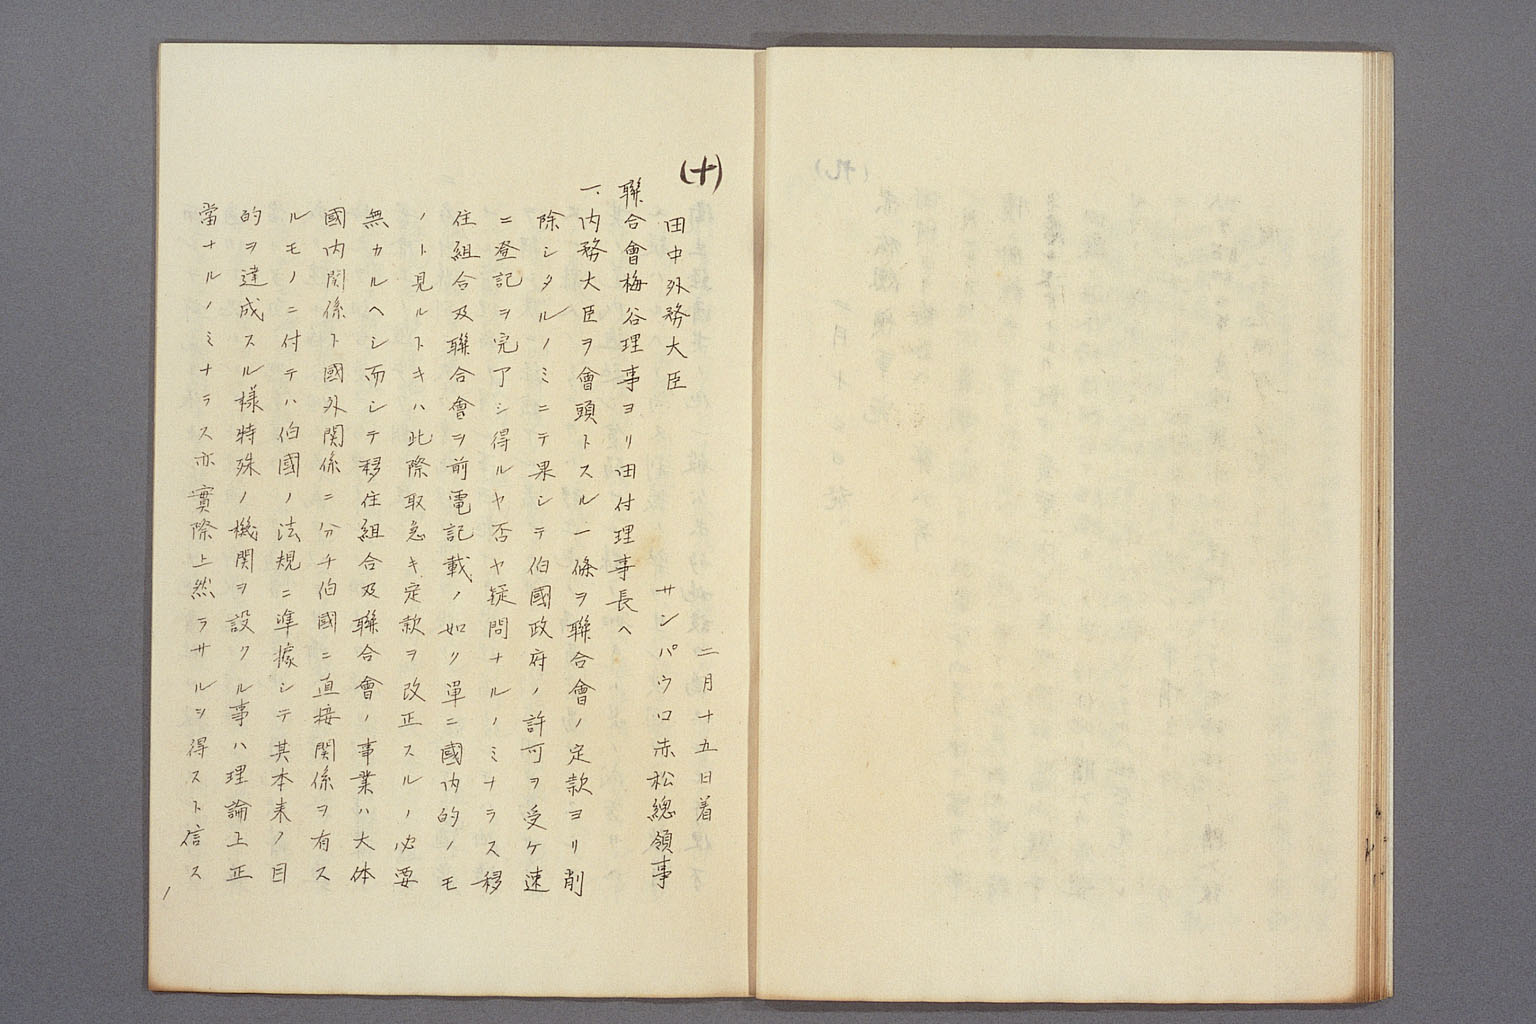 (十)
二月十五日着
田中外務大臣　サンパウロ赤松總領事
聯合會梅谷理事ヨリ田付理事長ヘ
一、内務大臣ヲ會頭トスル一條ヲ聯合會ノ定款ヨリ削
除シタルノミニテ果シテ伯國政府ノ許可ヲ受ケ速
ニ登記ヲ完了シ得ルヤ否ヤ疑問ナルノミナラス移
住組合及聯合會ヲ前電記載ノ如ク單ニ國内的ノモ
ノト見ルトキハ此際取急キ定款ヲ改正スルノ必要
無カルヘシ而シテ移住組合及聯合會ノ事業ハ大体
國内関係ト國外関係ニ分チ伯國ニ直接関係ヲ有ス
ルモノニ付テハ伯國ノ法規ニ準據シテ其本来ノ目
的ヲ達成スル様特殊ノ機関ヲ設クル事ハ理論上正
當ナルノミナラス亦實際上然ラサルヲ得スト信ス